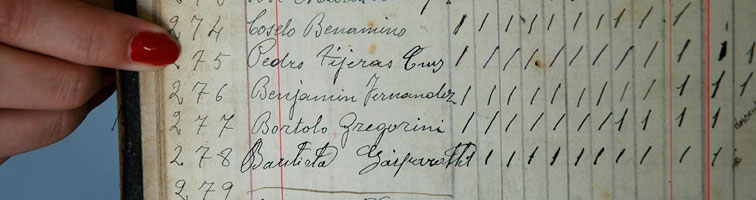 274 Coselo Benamino
275 Pedro Tijeras Cruz
276 Benjamin Fernandez
277 Bortolo Gregorini
278 Bautista
279